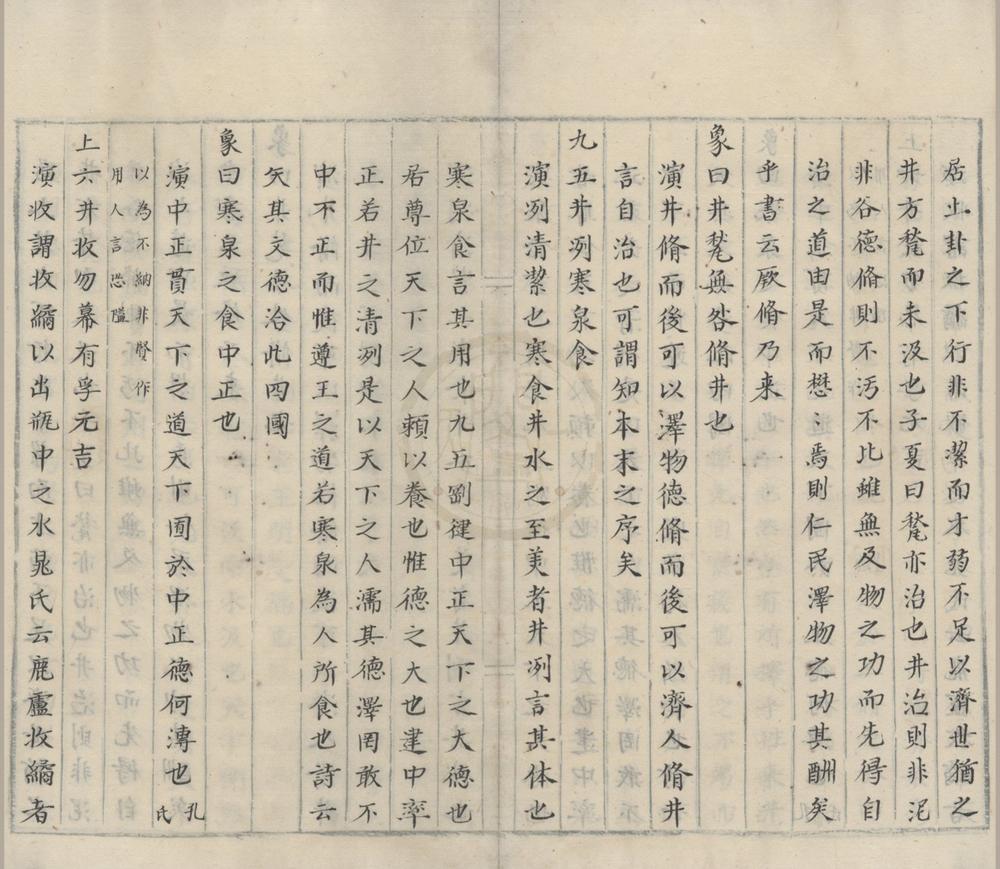 居止卦之下行非不潔而才弱不足以濟世猶之
井方甃而未汲也子夏曰甃亦治也井治則非泥
非谷德脩則不汚不比雖無及物之功而先得自
治之道由是而懋〻焉則仁民澤物之功其酬矣
乎書云厥脩乃来
象曰井甃無咎脩井也
演井脩而後可以澤物德脩而後可以濟人脩井
言自治也可謂知本末之序矣
九五井冽寒泉食
演冽清潔也寒食井水之至美者井冽言其体也
寒泉食言其用也九五剛健中正天下之大德也
居尊位天下之人頼以養也惟德之大也建中率
正若井之清冽是以天下之人濡其德澤罔敢不
中不正而惟遵王之道若寒泉為人所食也詩云
矢其文德洽此四國
象曰寒泉之食中正也
演中正貫天下之道天下囿於中正德何溥也孔氏
以為不納非賢作
用人言恐隘
上六井收勿幕有孚元吉
演收謂收繘以出瓶中之水晁氏云鹿盧收繘者